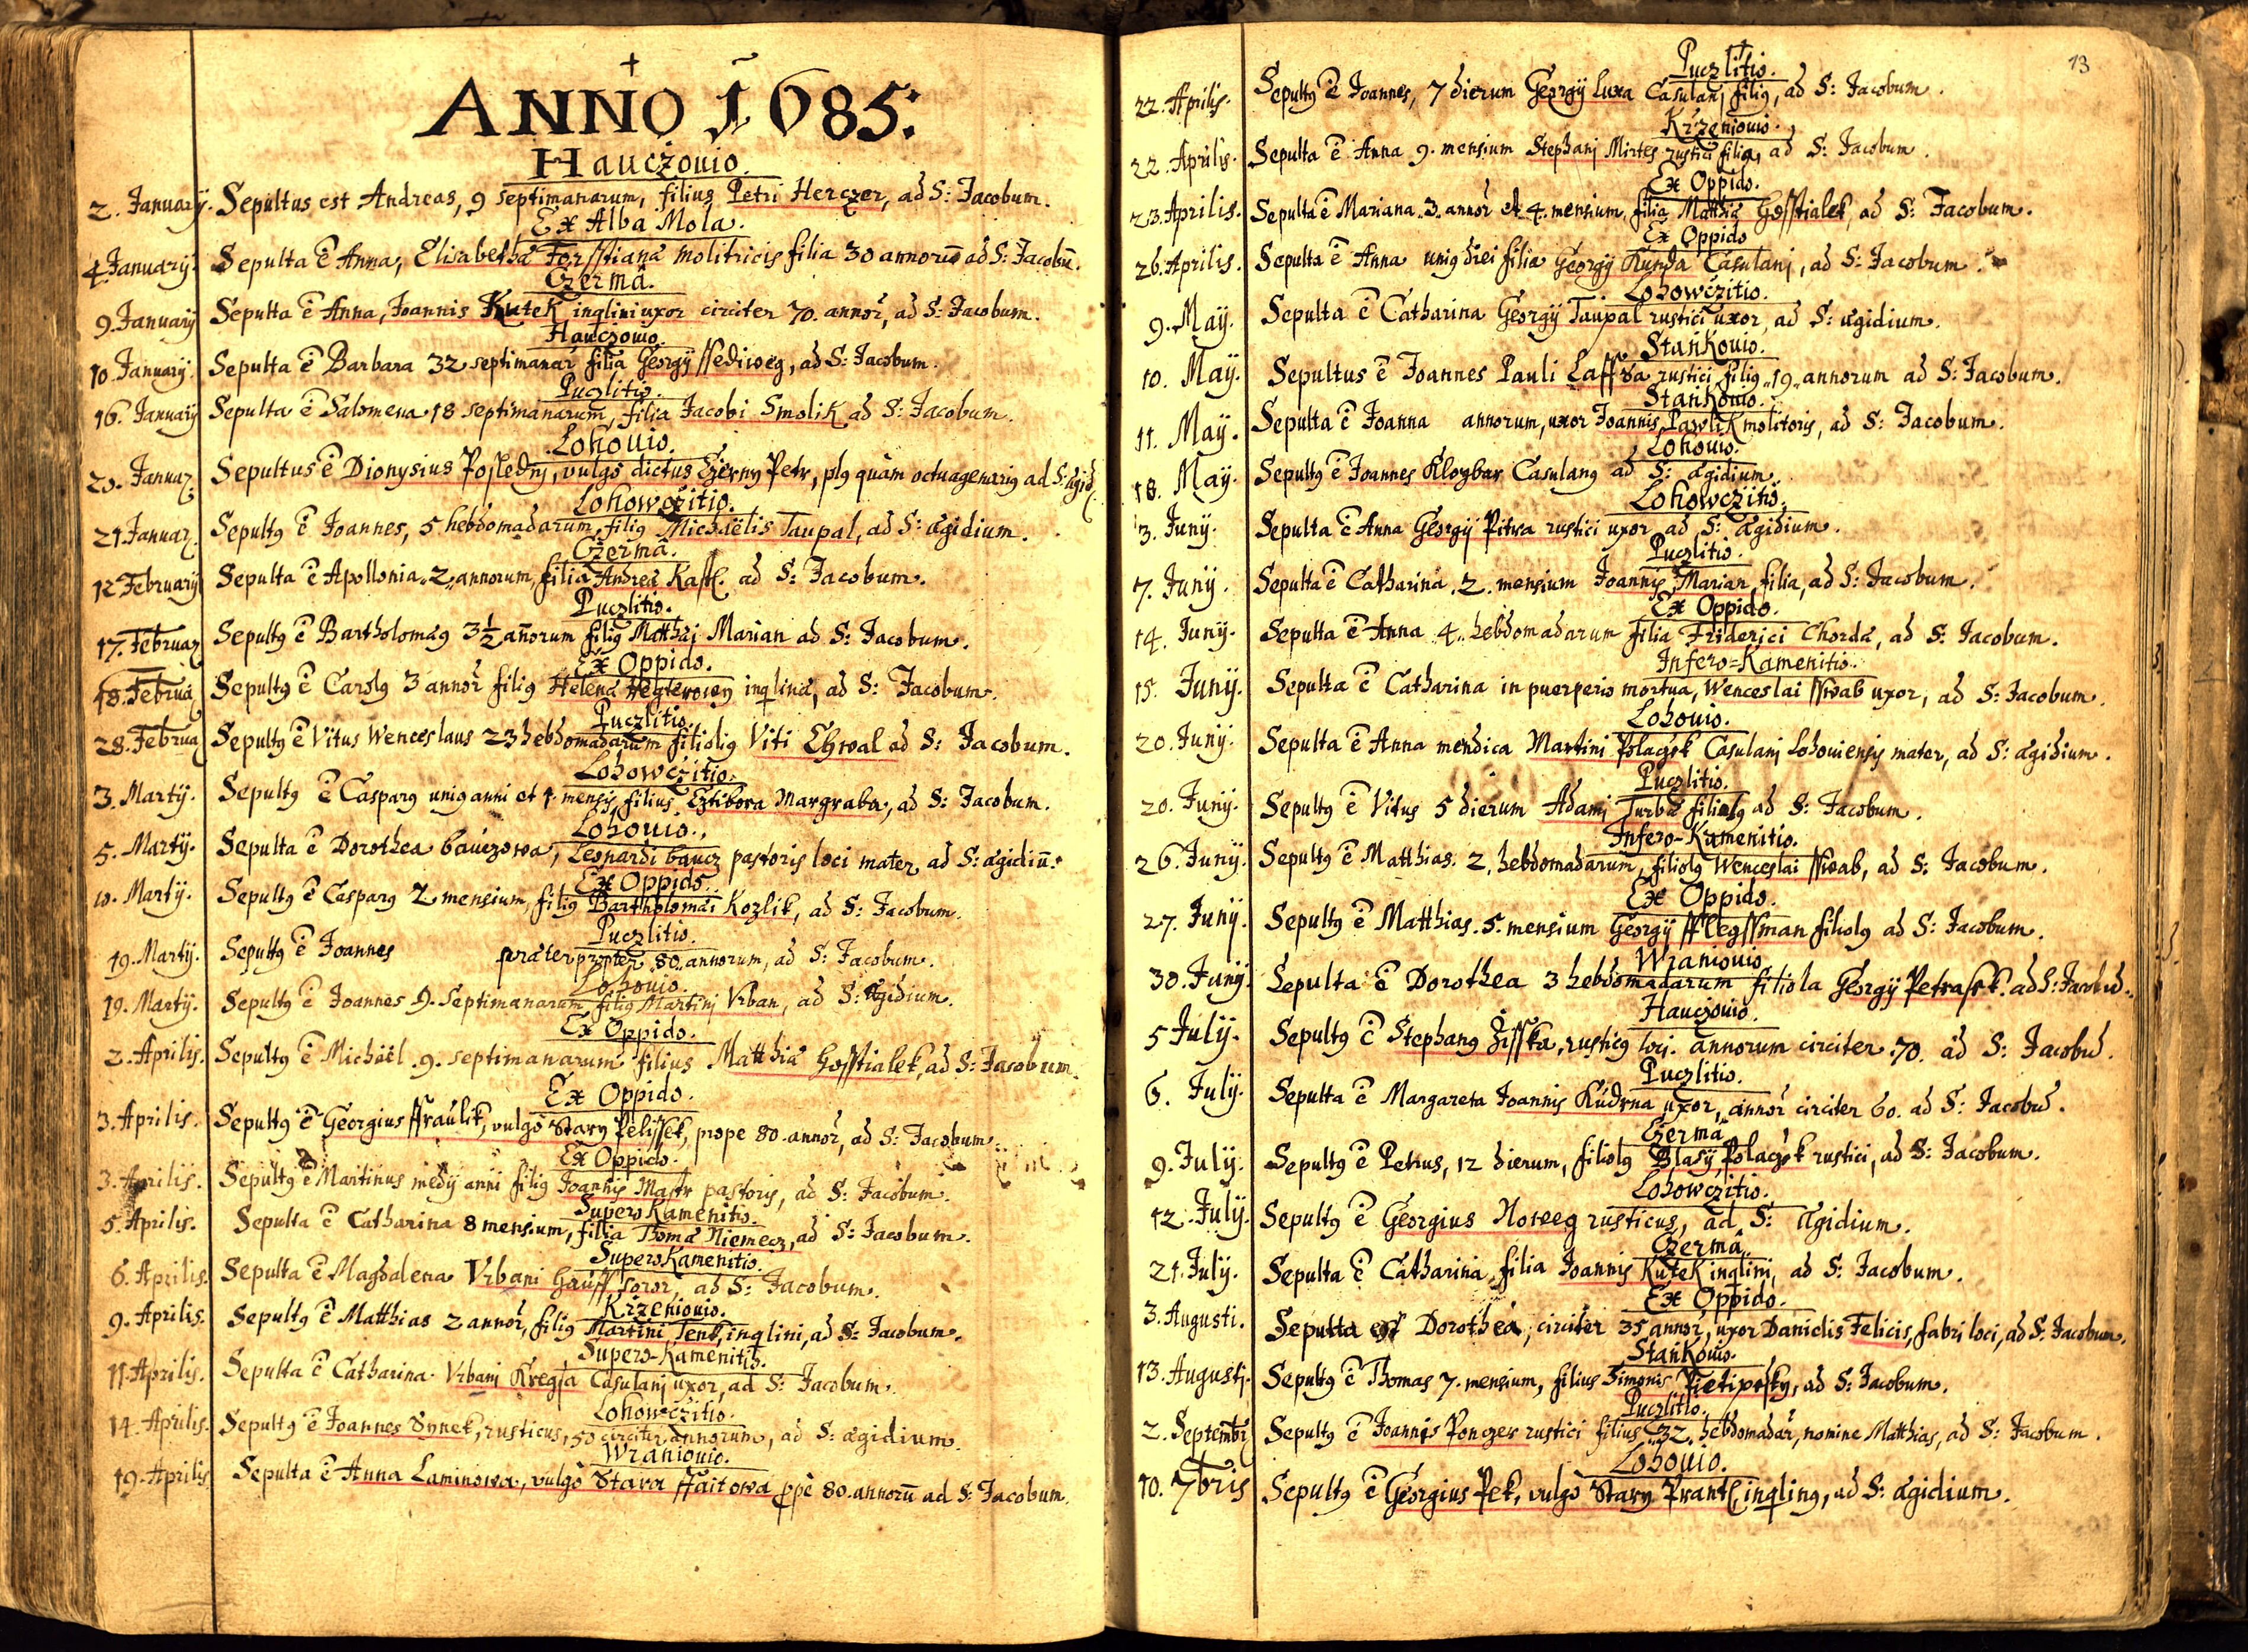 ✝
ANNO 1685:
Hauczouio.
2. January. Sepultus est Andreas, 9 septimanarum, filius Petri Herczer, ad S: Jacobum.
Ex Alba Mola.
4. January. Sepulta ē Anna, Elisabetha Forsstiana molitricis filia 30 annorū ad S: Jacobū.
Czerma.
9. January Sepulta ē Anna, Joannis Kutek inqlini uxor circiter 70. annor, ad S: Jacobum.
Hauczouio.
10 January. Sepulta ē Barbara 32 septimanar filia Georgÿ ssediweg, ad S: Jacobum.
Puczlitio.
16. January Sepulta ē Salomena 18 septimanarum, filia Jacobi Smolik ad S: Jacobum.
Lohouio.
20. Januar. Sepultus ē Dionysius Posledny, vulgò dictus Czerny Petr, plq quàm octuagenariq ad S: ægid.
Lohowczitio.
21 Januar. Sepultq ē Joannes, 5 hebdomadarum, filiq Michaëlis Taupal, ad S: ægidium.
Czerma.
12 February Sepulta ē Apollonia 2 annorum, filia Andreæ Kastl. ad S: Jacobum.
Puczlitio.
17. Februar Sepultq ē Bartholomæq 3½ añorum filiq Matthæi Marian ad S: Jacobum.
Ex Oppido.
18. Februa Sepultq ē Carolq 3 annor filiq Helenæ inqlinæ, ad S: Jacobum.
Puczlitio.
28. Februa Sepultq ē Vitus Wenceslaus 23 hebdomadarum filioliq Viti Chwal ad S: Jacobum.
Lohowczitio.
3. Martÿ. Sepultq ē Casparq uniq anni et 4. mensis, filius Cztibora Margraba, ad S: Jacobum.
Lohouio.
5. Martÿ. Sepulta ē Dorothea bauczowa, Leonardi baucz pastoris loci mater ad S: ægidiū.
Ex Oppido.
10. Martÿ. Sepultq ē Casparq 2 mensium, filiq Bartholomæi Kozlik, ad S: Jacobum.
Puczlitio.
19. Martÿ. Sepultq ē Joannes præterpropter 80 annorum, ad S: Jacobum.
Lohouio.
19. Martÿ. Sepultq ē Joannes 9. septimanarum filiq Martini Vrban, ad S: ægidium.
Ex Oppido.
2. Aprilis. Sepultq ē Michaël .9. septimanarum filius Matthiæ Hosstialek, ad S: Jacobum.
Ex Oppido.
3. Aprilis. Sepultq ē Georgius ffraulik, vulgò Stary Pelissek, prope 80. annor, ad S: Jacobum.
Ex Oppido.
3. Aprilis. Sepultq ē Martinus medÿ anni filiq Joannis Mastr pastoris, ad S: Jacobum.
Supero Kamenitio.
5. Aprilis. Sepulta ē Catharina 8 mensium, filia Thomæ Niemecz, ad S: Jacobum.
Supero Kamenitio.
6. Aprilis. Sepulta ē Magdalena Vrbani Hauff soror, ad S: Jacobum.
Krzeniouio.
9. Aprilis. Sepultq ē Matthias 2 annor, filiq Martini Tenk, inqlini, ad S: Jacobum.
Supero-Kamenitio.
11. Aprilis. Sepulta ē Catharina Vrbani Kregsa Casulani uxor, ad S: Jacobum.
Lohowczitio.
14. Aprilis. Sepultq ē Joannes Synek, rusticus, 50 circiter annorum, ad S: ægidium.
Wraniouio.
19. Aprilis Sepulta ē Anna Laminowa, vulgò Stara ffaitowa ppè 80. annorū ad S: Jacobum.
13
Puczlitio.
22. Aprilis. Sepultq ē Joannes, 7 dierum Georgÿ Luxa Casulani filiq, ad S: Jacobum.
Krzeniouio.
22. Aprilis. Sepulta ē Anna 9. mensium Stephani Mirtes rustici filia, ad S: Jacobum.
Ex Oppido.
23. Aprilis. Sepulta ē Mariana 3. annor et 4. mensium, filia Matthiæ Hosstialek, ad S: Jacobum.
Ex Oppido
26. Aprilis. Sepulta ē Anna uniq diei filia Georgÿ Kunda Casulani, ad S: Jacobum.
Lohowczitio.
9. Maÿ. Sepulta ē Catharina Georgÿ Taupal rustici uxor, ad S: ægidium.
Stankouio.
10. Maÿ. Sepultus ē Joannes Pauli Laffra rustici filiq 19 annorum ad S: Jacobum.
Stankouio.
11. Maÿ. Sepulta ē Joanna annorum, uxor Joannis Pawlik molitoris, ad S: Jacobum.
Lohouio.
18. Maÿ. Sepultq ē Joannes Klogbar Casulanq ad S: ægidium
Lohowczitio.
3. Junÿ. Sepulta ē Anna Georgÿ Pitra rustici uxor ad S: ægidium.
Puczlitio.
7. Junÿ. Sepulta ē Catharina .2. mensium Joannis Marian filia, ad S: Jacobum.
Ex Oppido.
14. Junÿ. Sepulta ē Anna 4. hebdomadarum filia Friderici Chorda, ad S: Jacobum.
Infero=Kamenitio.
15. Junÿ. Sepulta ē Catharina in puerperio mortua, Wenceslai sswab uxor, ad S: Jacobum.
Lohouio.
20. Junÿ. Sepulta ē Anna mendica Martini Polaczek Casulani Lohouiensis mater, ad S: ægidium.
Puczlitio.
20. Junÿ. Sepultq ē Vitus 5 dierum Adami Turba filiolq ad S: Jacobum.
Infero-Kamenitio.
26. Junÿ. Sepultq ē Matthias. 2. hebdomadarum, filiolq Wenceslai sswab, ad S: Jacobum.
Ex Oppido.
27. Junÿ. Sepultq ē Matthias. 5. mensium Georgÿ fflegssman filiolq ad S: Jacobum.
Wraniouio
30. Junÿ. Sepulta ē Dorothea 3 hebdomadarum filiola Georgÿ Petrasek. ad S: Jacobū.
Hauczouio.
5 Julÿ. Sepultq ē Stephanq Zisska, rusticq loci. annorum circiter .70. ad S: Jacobū.
Puczlitio.
6. Julÿ. Sepulta ē Margareta Joannis Kudrna uxor, annor circiter 60. ad S: Jacobū.
Czerma
9. Julÿ. Sepultq ē Petrus, 12 dierum, filiolq Blasÿ Polaczek rustici, ad S: Jacobum.
Lohowczitio.
12. Julÿ. Sepultq ē Georgius Noweg rusticus, ad S: ægidium.
Czerma.
21. Julÿ. Sepulta ē Catharina, filia Joannis Kutek inqlini, ad S: Jacobum.
Ex Oppido.
3. Augusti. Sepulta est Dorothea, circiter 35 annor, uxor Danielis Felicis, fabri loci, ad S: Jacobum.
Stankouio.
13. Augusti. Sepultq ē Thomas 7. mensium, filius Simonis Pietipesky, ad S: Jacobum.
Puczlitio.
2. Septembr Sepultq ē Joannis Ponczer rustici filius 32. hebdomadar, nomine Matthias, ad S: Jacobum.
Lohouio.
10. 7bris Sepultq ē Georgius Pek, vulgò Stary Prantl inqlinq, ad S: ægidium.